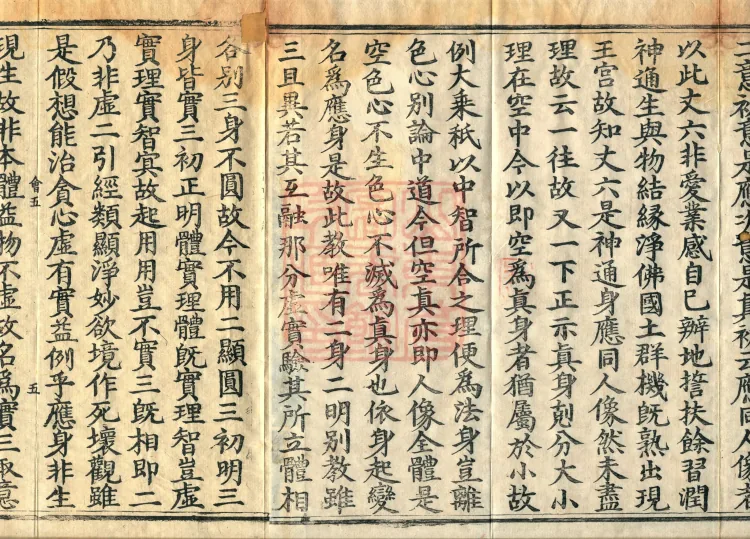 二意初意是應次意是眞初云應同人像者
以此丈六非愛業感自已辦地誓扶餘習潤
神通生與物結緣淨佛國土群機旣熟出現
王宮故知丈六是神通身應同人像然未盡
理故云一往故又一下正示眞身剋分大小
理在空中今以即空爲眞身者猶屬於小故
例大乘秖以中智所合之理便爲法身豈離
色心別論中道今但空眞亦即人像全體是
空色心不生色心不滅爲眞身也依身起變
名爲應身是故此教唯有二身二明別教雖
三且異若其互融那分虛實驗其所立體相
各別三身不圓故今不用二顯圓三初明三
身皆實三初正明體實理體旣實理智豈虛
實理實智冥故起用用豈不實三旣相即二
乃非虛二引經類顯淨妙欲境作死壞觀雖
是假想能治貪心虛有實益例乎應身非生
會五 五
現生故非本體益物不虛故名爲實三趣意